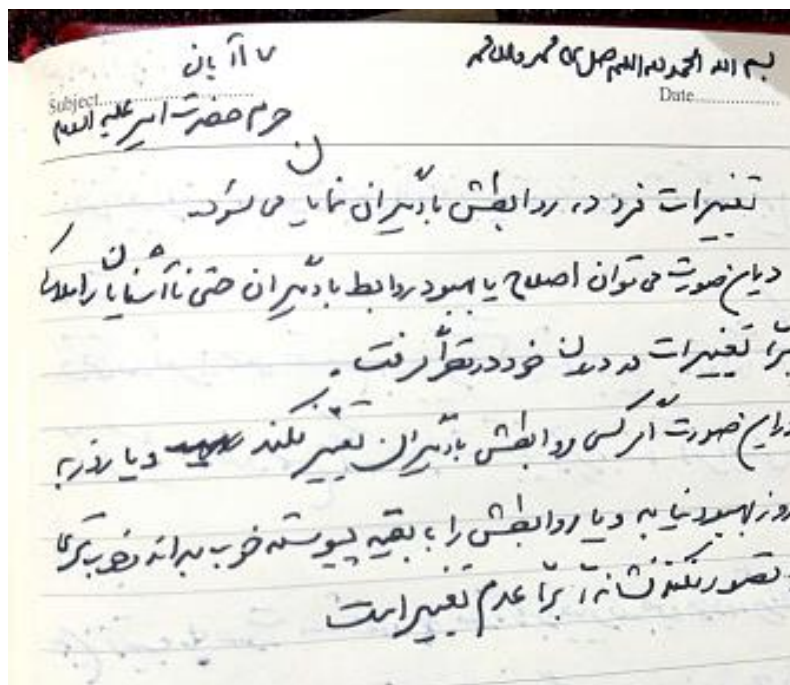 بسم الله الحمدلله اللهم صل علی محمد و آل محمد
۷ آبان
Date
Subject
حرم حضرت امیر علیه السلام
تغییرات فرد در روابطش با دیگران نمایان می شود.
در این صورت می توان اصلاح یا بهبود روابط با دیگران حتی ناآشنایان را ملاک
برای تغییرات در درون خود در نظر گرفت.
در این صورت اگر کسی روابطش با دیگران تغییر نکند و یا روز به
روز بهبود نیابد و یا روابطش را با بقیه پیوسته خوب بداند و خوب تری
تصور نکند نشانه ای برای عدم تغییر است